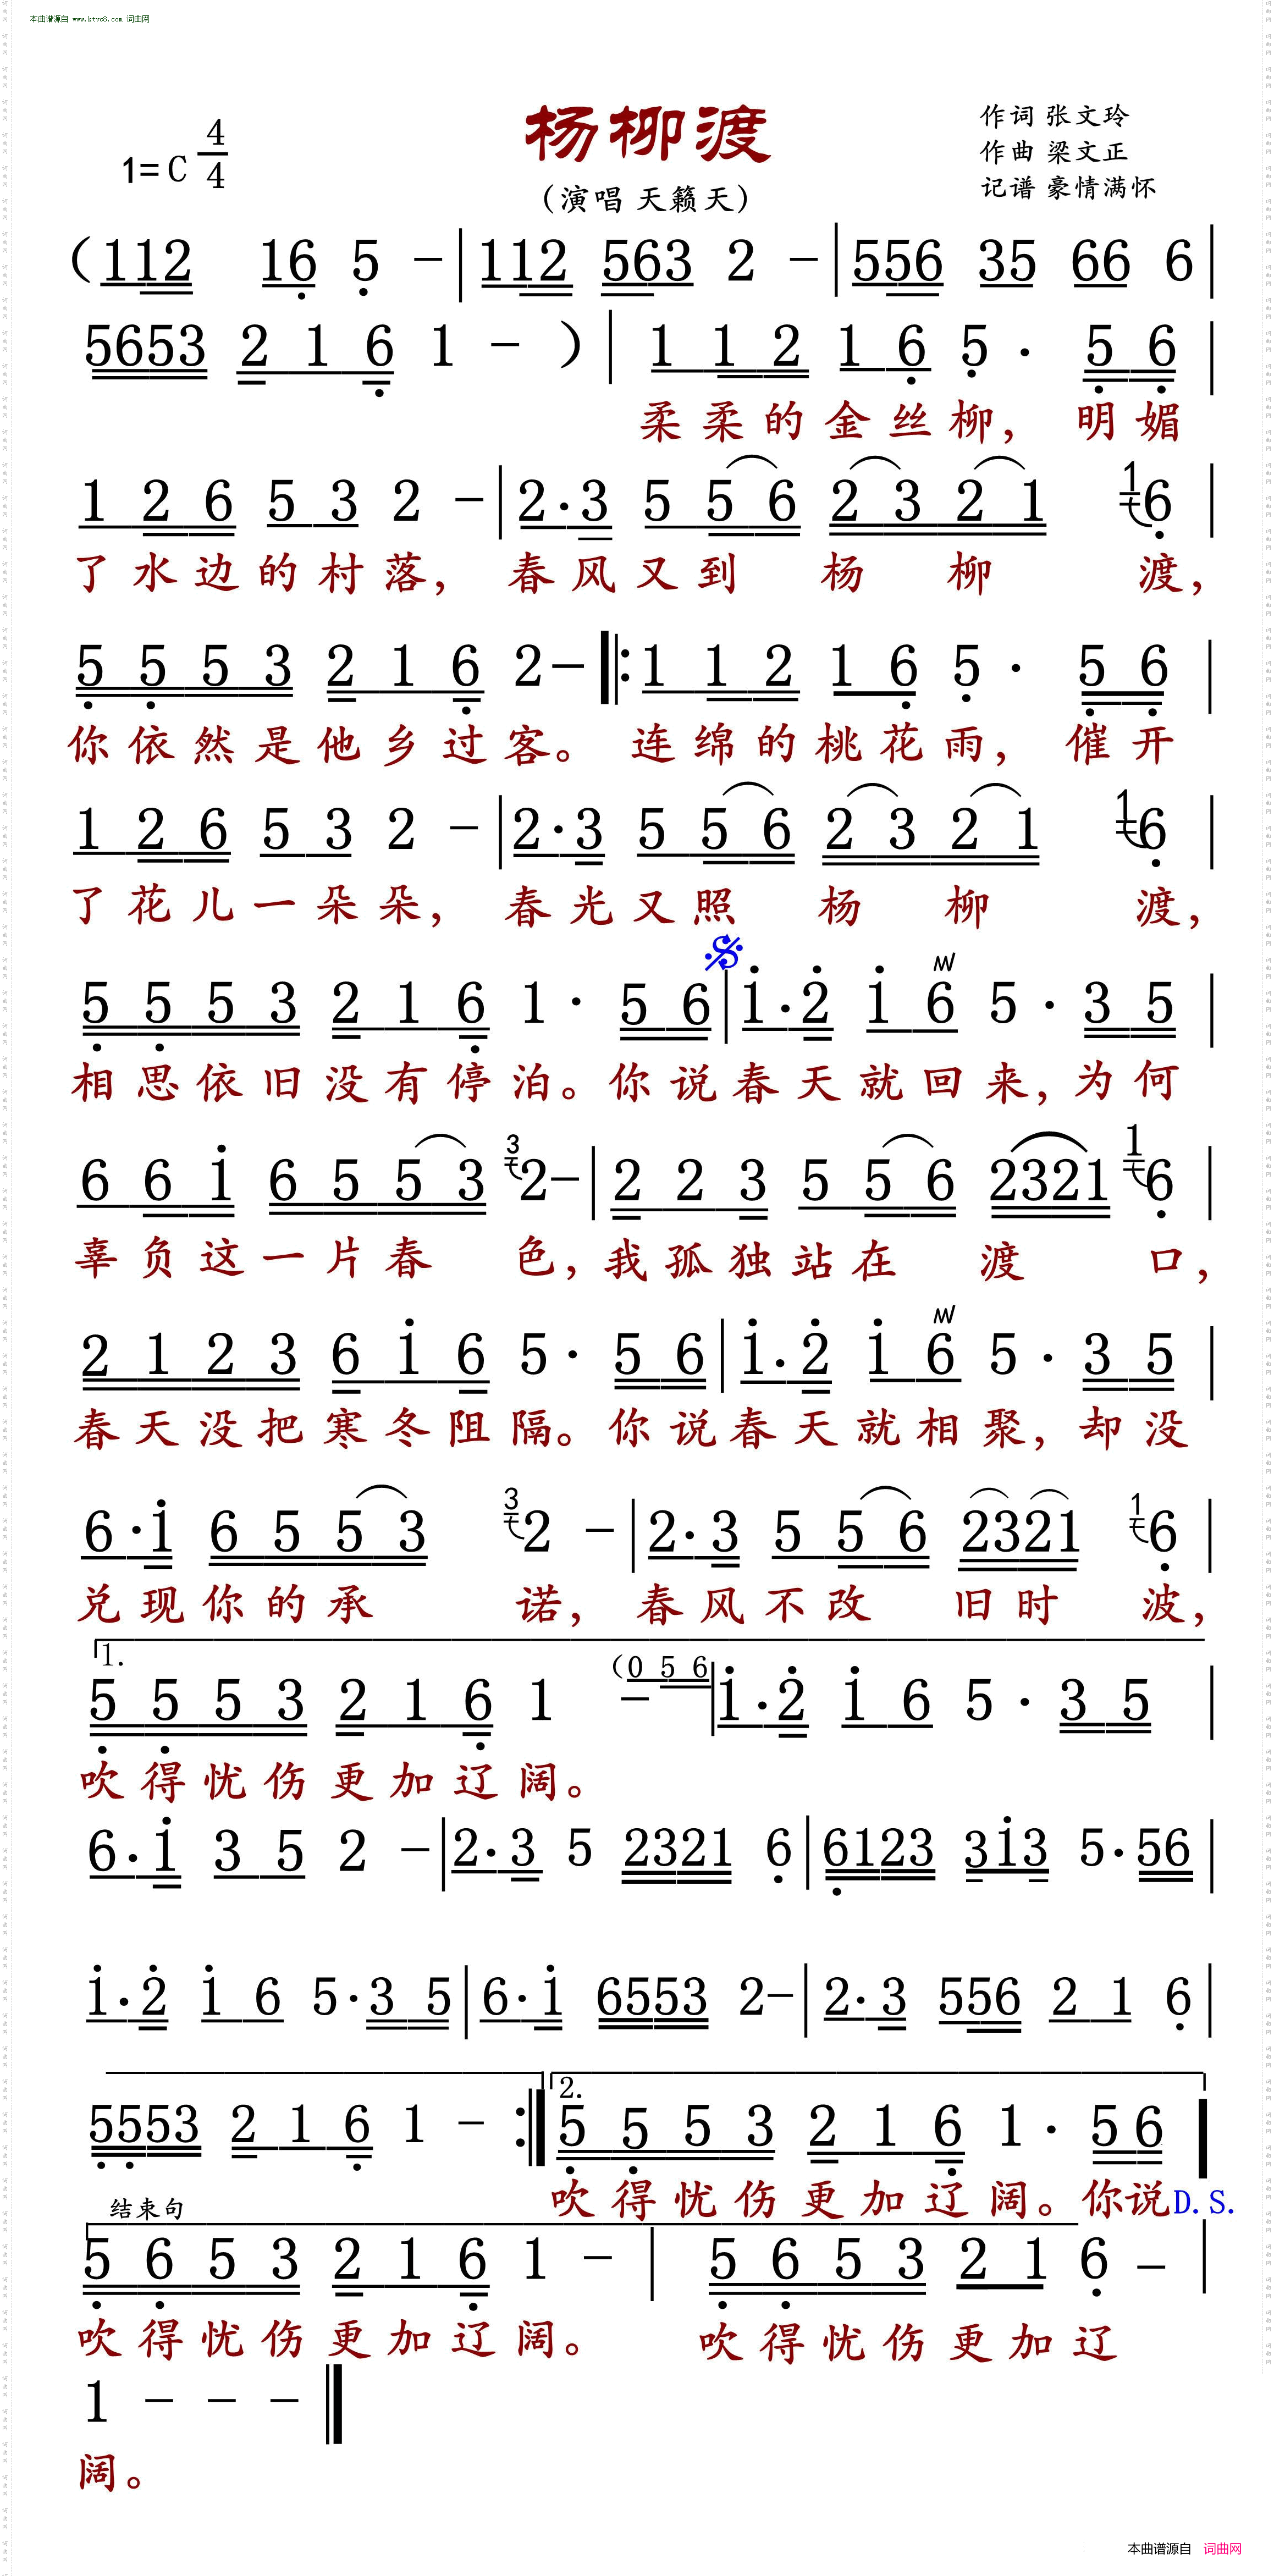 本曲谱源自 www.ktvc8.com 词曲网
杨柳渡
作词 张文玲
作曲 梁文正
记谱 豪情满怀
1= C 4/4
(演唱 天籁天)
(112 16 5 - | 112 563 2 - | 556 35 66 6 |
5653 2 1 6 1 - ) | 1 1 2 1 6 5 · 5 6 |
柔柔的金丝柳， 明媚
1 2 6 5 3 2 - | 2·3 5 5 6 2 3 2 1 1 6 |
了水边的村落， 春风又到 杨 柳 渡，
5 5 5 3 2 1 6 2 - |: 1 1 2 1 6 5 · 5 6 |
你依然是他乡过客。 连绵的桃花雨， 催开
1 2 6 5 3 2 - | 2·3 5 5 6 2 3 2 1 1 6 |
了花儿一朵朵， 春光又照 杨 柳 渡，
5 5 5 3 2 1 6 1 · 5 6 | 1·2 1 6 5 · 3 5 |
相思依旧没有停泊。你说春天就回来，为何
6 6 1 6 5 5 3 3 2 - | 2 2 3 5 5 6 2321 1 6 |
辜负这一片春 色，我孤独站在 渡 口，
2 1 2 3 6 1 6 5 · 5 6 | 1·2 1 6 5 · 3 5 |
春天没把寒冬阻隔。你说春天就相聚，却没
6·1 6 5 5 3 3 2 - | 2·3 5 5 6 2321 1 6 |
兑现你的承 诺， 春风不改 旧时 波，
1.
5 5 5 3 2 1 6 1 - (0 5 6 | 1·2 1 6 5 · 3 5 |
吹得忧伤更加辽阔。
6·1 3 5 2 - | 2·3 5 2321 6 | 6123 313 5·56 |
1·2 1 6 5·3 5 | 6·1 6553 2- | 2·3 556 2 1 6 |
5553 2 1 6 1 - :| 2. 5 5 5 3 2 1 6 1 · 5 6 |
吹得忧伤更加辽阔。你说D.S.
结束句
5 6 5 3 2 1 6 1 - | 5 6 5 3 2 1 6 - |
吹得忧伤更加辽阔。 吹得忧伤更加辽
1 - - - ‖
阔。
本曲谱源自 词曲网